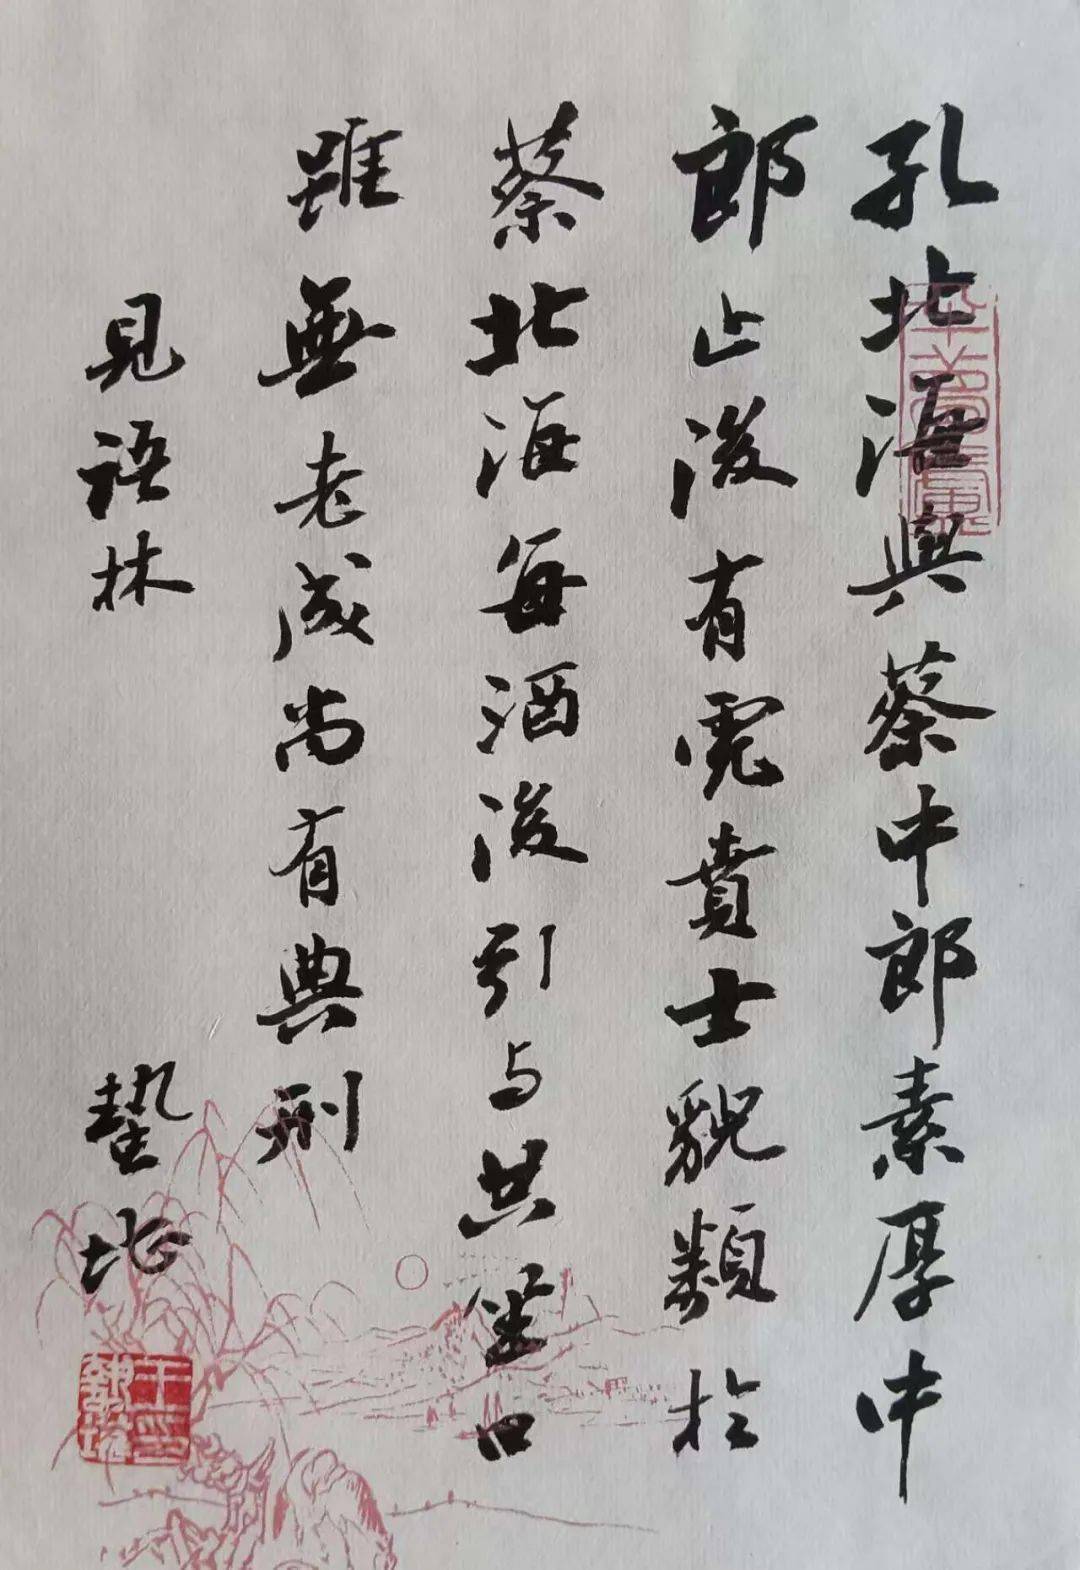 孔北海與蔡中郎素厚中
郎亡後有虎賁士貌類於
蔡北海每酒後引与共坐曰
雖無老成尚有典刑
見語林
蟄堪
王蟄堪印